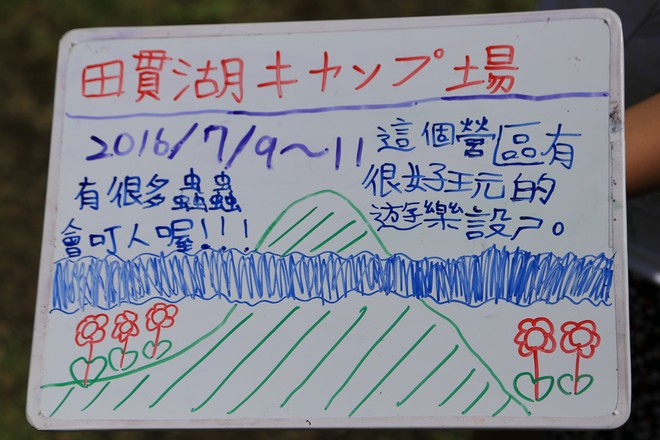 田貫湖キャンプ場
2016/7/9～11
有很多蟲蟲
會叮人喔!!!
這個營區有
很好玩的
遊樂設ㄕ。